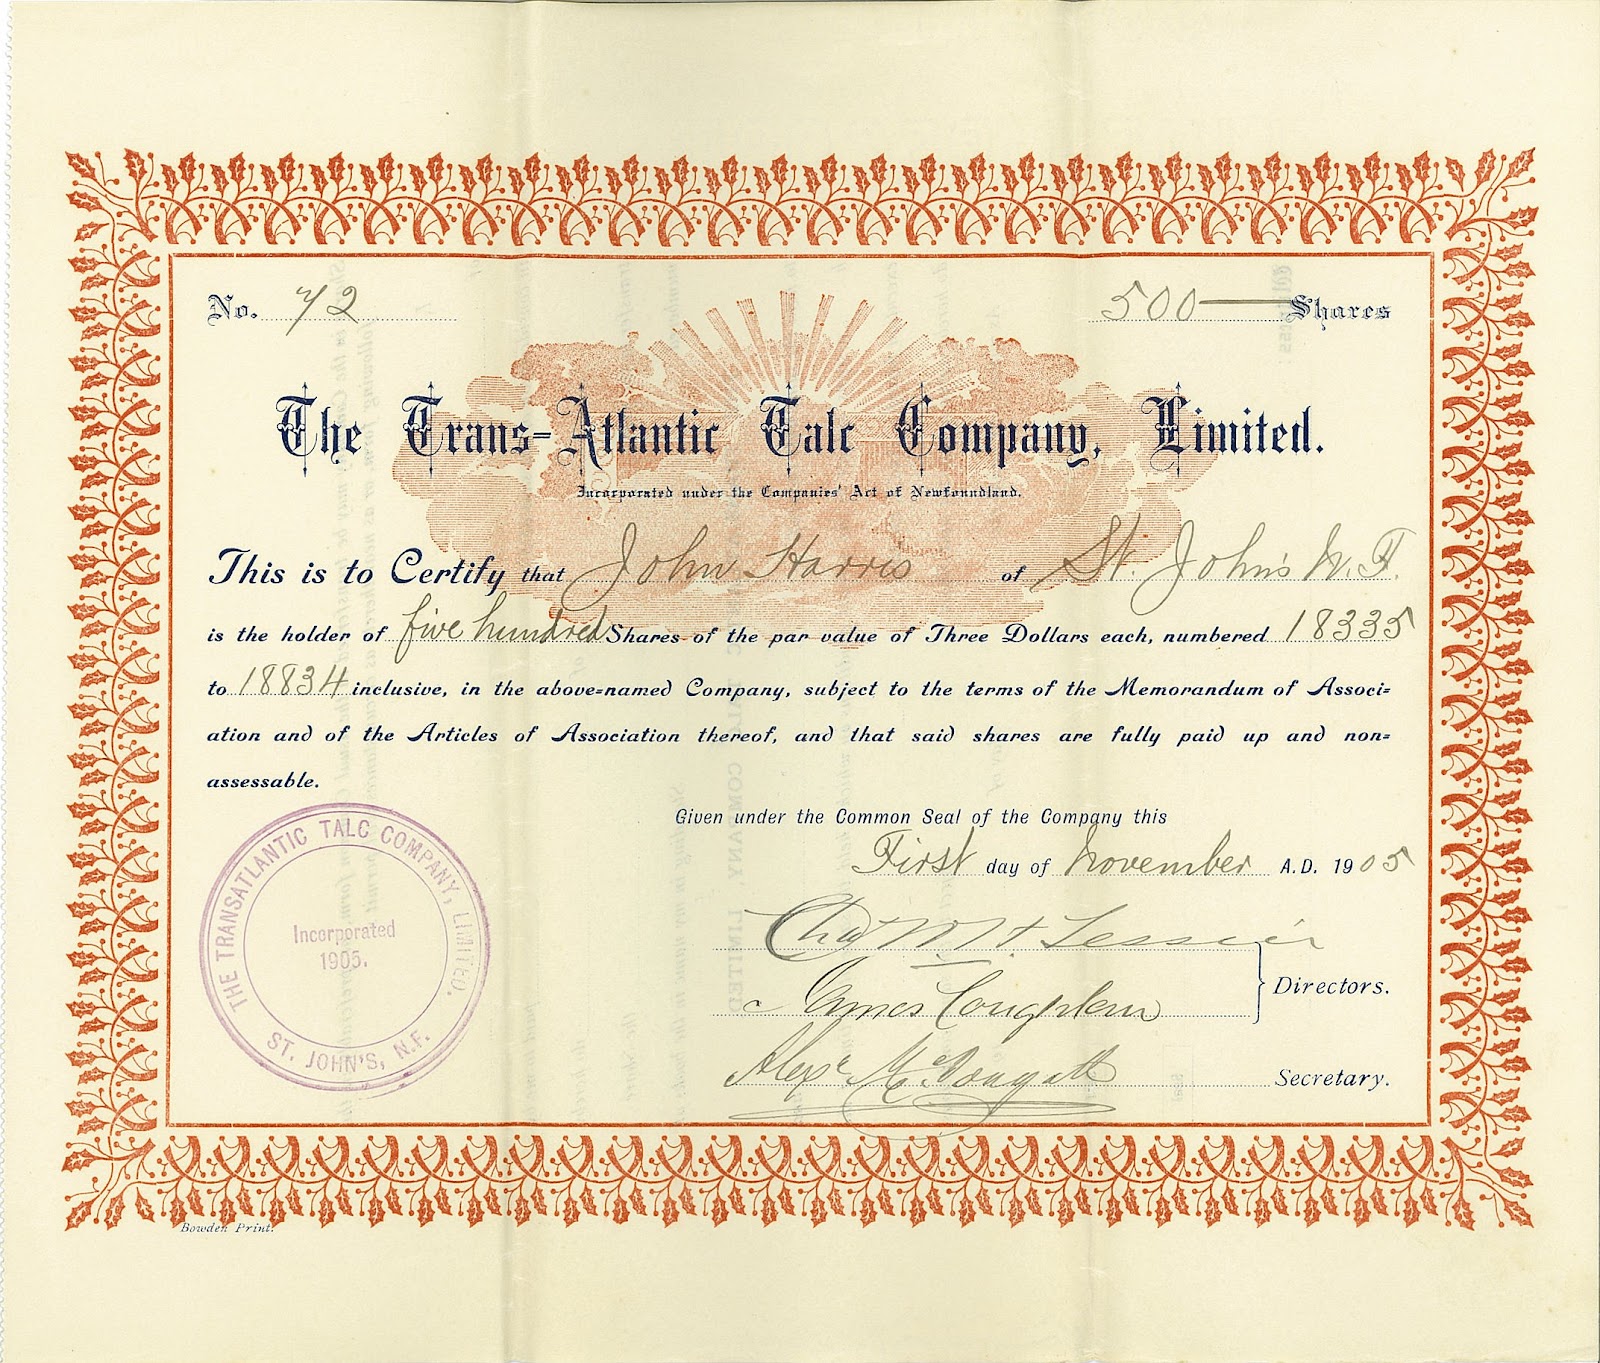 No. 72
500 Shares
The Trans-Atlantic Talc Company, Limited.
Incorporated under the Companies' Act of Newfoundland.
This is to Certify that John Harris of St. John's N.F.
is the holder of five hundred Shares of the par value of Three Dollars each, numbered 18335
to 18834 inclusive, in the above=named Company, subject to the terms of the Memorandum of Associ=
ation and of the Articles of Association thereof, and that said shares are fully paid up and non=
assessable.
Given under the Common Seal of the Company this
First day of November A.D. 1905
THE TRANSATLANTIC TALC COMPANY, LIMITED.
Incorporated
1905.
ST. JOHN'S, N.F.
Directors.
James
Alexr McDougall
Secretary.
Bowden Print.